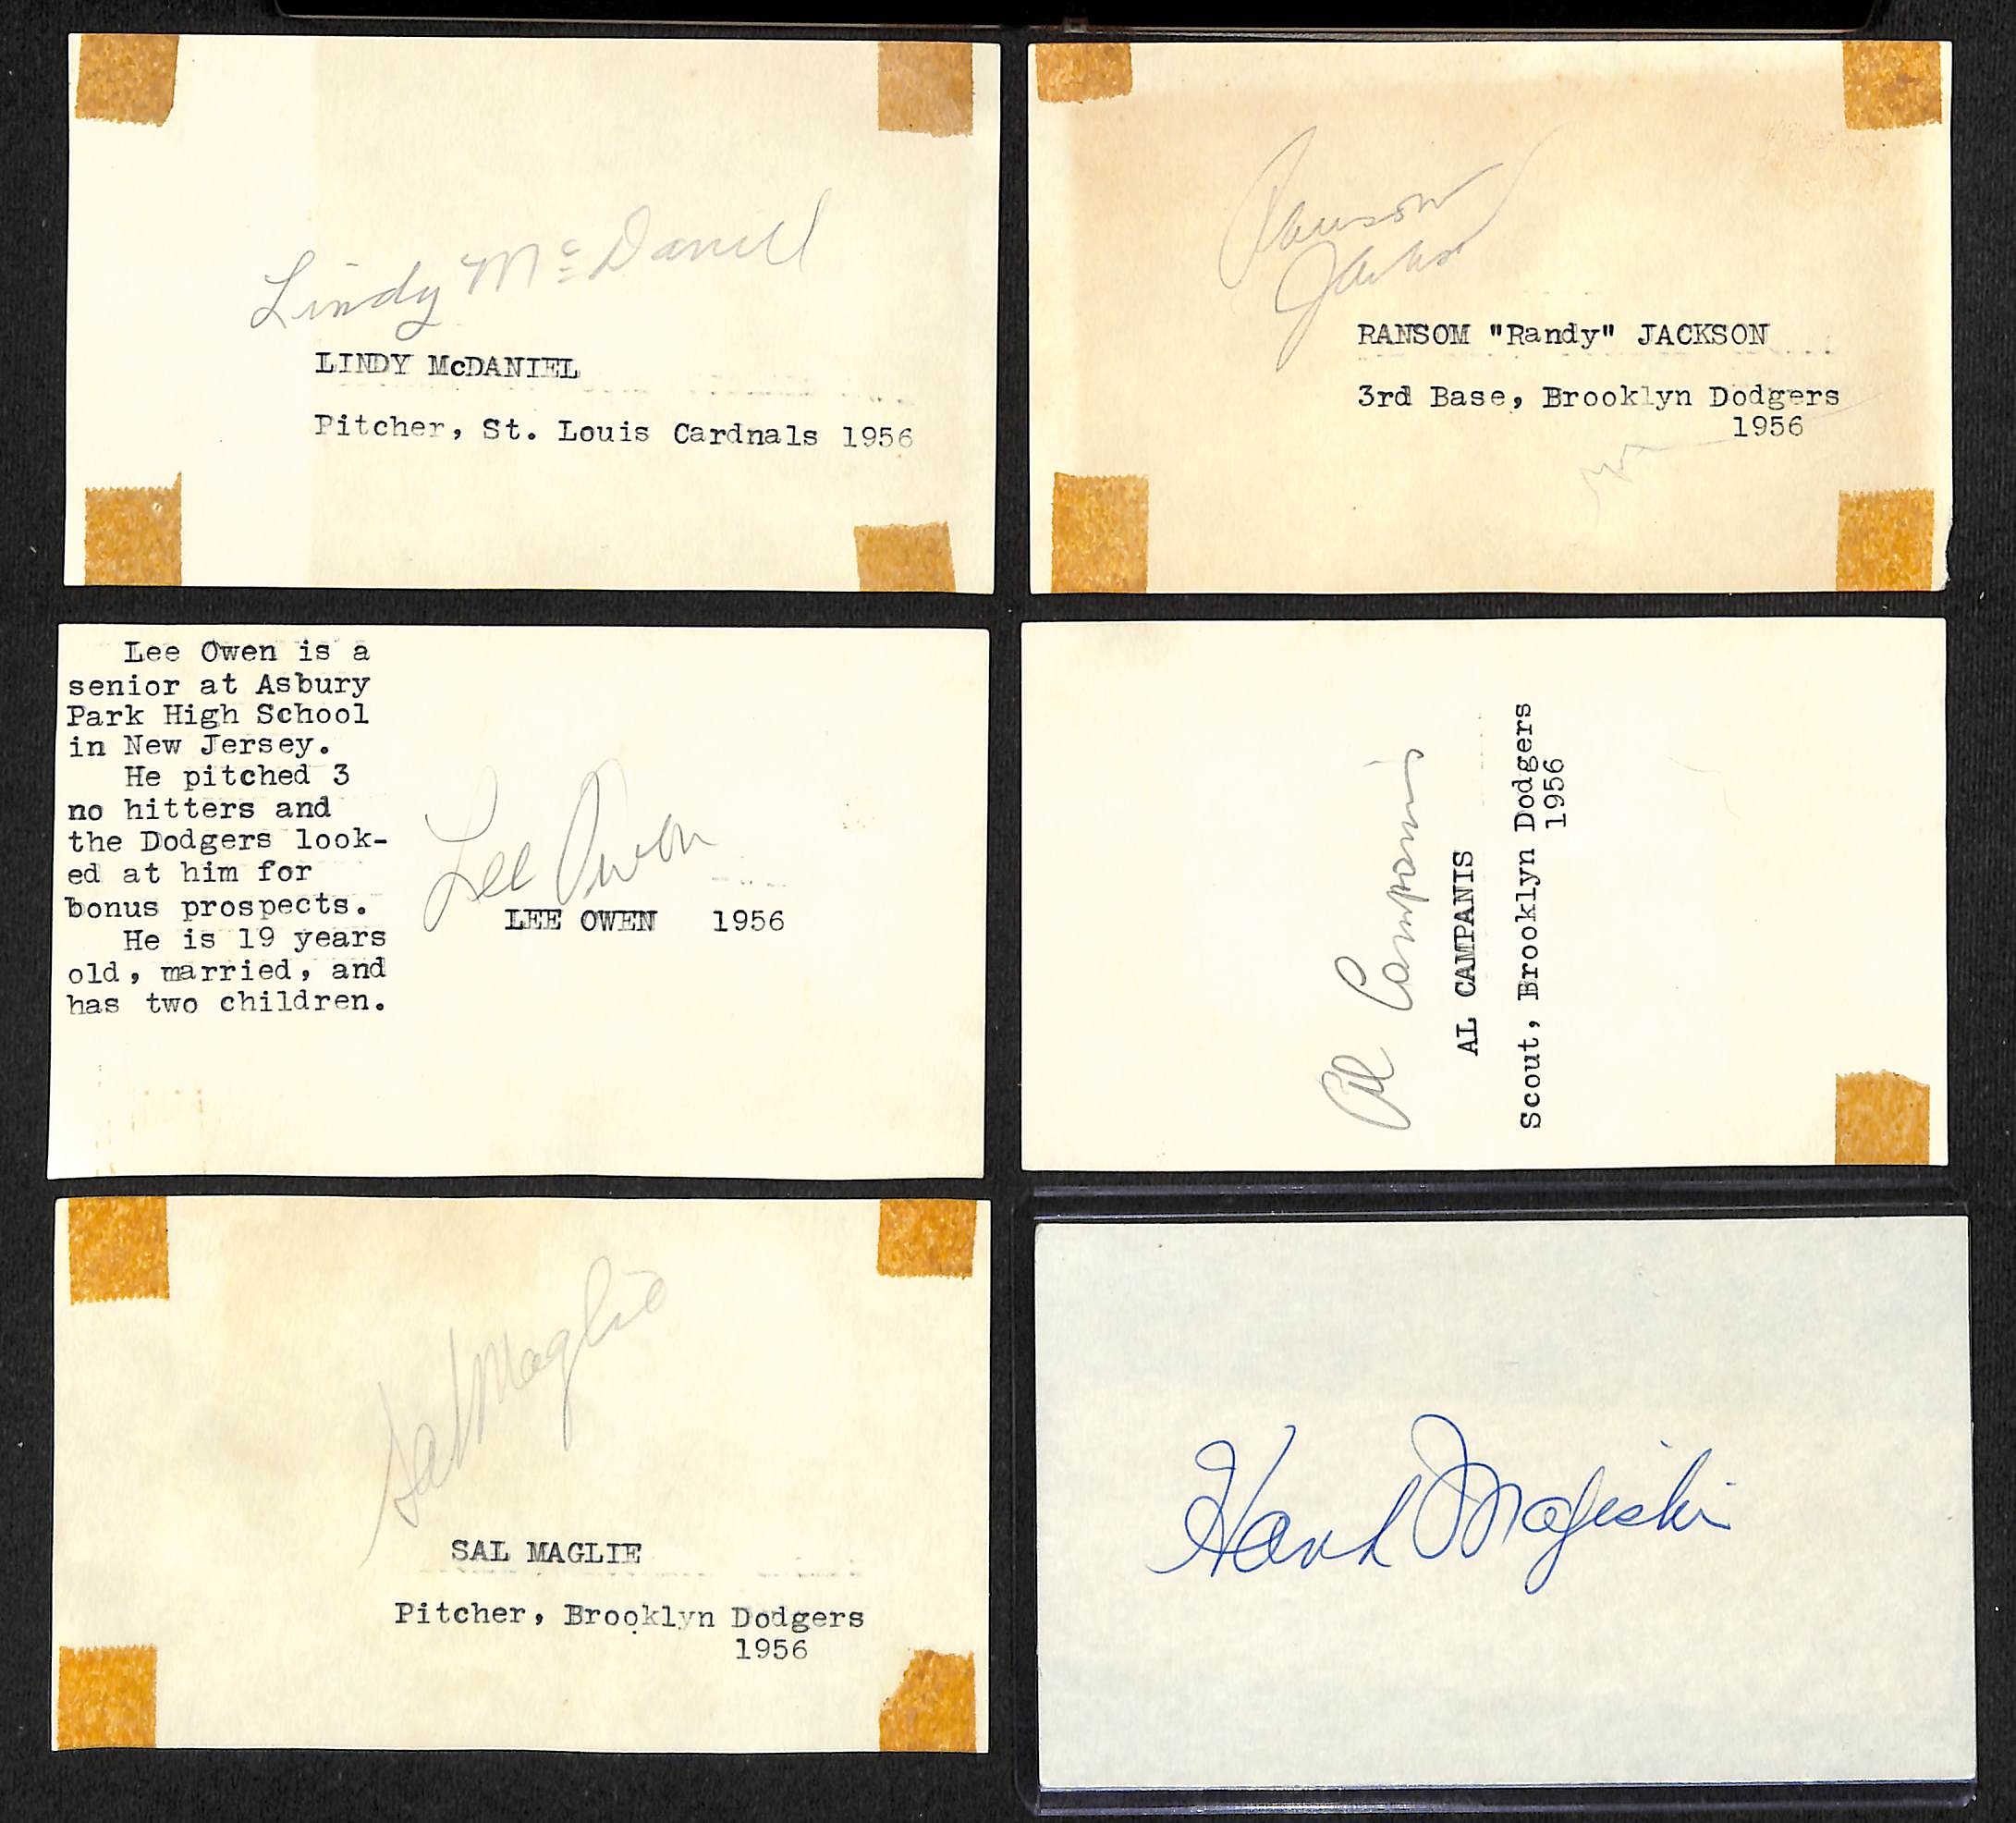 Lindy McDaniel
LINDY McDANIEL
Pitcher, St. Louis Cardnals 1956
Ransom
Jackson
RANSOM "Randy" JACKSON
3rd Base, Brooklyn Dodgers
1956
Lee Owen is a
senior at Asbury
Park High School
in New Jersey.
He pitched 3
no hitters and
the Dodgers look-
ed at him for
bonus prospects.
He is 19 years
old, married, and
has two children.
Lee Owen
LEE OWEN 1956
Al Campanis
AL CAMPANIS
Scout, Brooklyn Dodgers
1956
Sal Maglie
SAL MAGLIE
Pitcher, Brooklyn Dodgers
1956
Hank Majeski